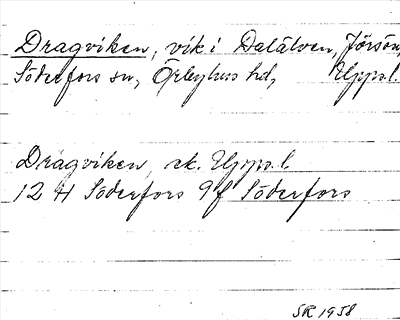 Dragviken, vik i Dalälven, Jörsön,
Söderfors sn, Örbyhus hd, Uppl.
Dragviken, ek. Uppl.
12 H Söderfors 9 f Söderfors
SR 1958